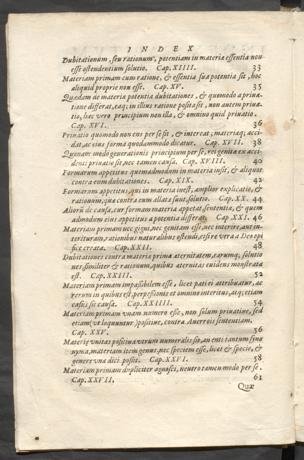 INDEX
Dubitationum, seu rationum, potentiam in materia essentia non
esse ostendentium solutio. Cap. XIIII. 33
Materiam primam cum ratione, & essentia sua potentia sit, hoc
aliquid proprie non esse. Cap. XV. 35
Quædam de materia potentia dubitationes, & quomodo a priua-
tione differat, eaq; in illius ratione posita sit, non autem priua-
tio, hoc vero principium non illa, & omnino quid priuatio.
Cap. XVI. 36
Priuatio quomodo non ens per se sit, & intereat; materiaq; acci-
dat, ac eius forma quodammodo dicatur. Cap. XVII. 38
Quonam modo generationis principium per se, rei genitæ ex acci-
denti priuatio sit, nec tamen causa. Cap. XVIII. 40
Formarum appetitus quemadmodum in materia insit, & aliquæ
contra eum dubitationes. Cap. XIX. 42
Formarum appetitus, qui in materia inest, amplior explicatio, &
rationum, quæ contra eum allatæ sunt. solutio. Cap. XX. 44
Aliorum de causa, cur formam materia appetat sententia, & quem
admodum eius appetitus a potentia differat. Cap. XXI. 46
Materiam primam nec gigni, nec genitam esse, nec interire, aut in-
terituram, rationibus naturalibus ostendi, etsi re vera a Deo opi
fice creata. Cap. XXII. 48
Dubitationes contra materiæ primæ æternitatem, earumq; solutio
nes, similiter & rationum, quibus æternitas eiusdem monstrata
est. Cap. XXIII. 52
Materiam primam impassibilem esse, licet pati ei attribuatur, ac
rerum in quibus est, perpessiones et omnino interitus, atq; etiam
casus sit causa. Cap. XXIIII. 54
Materiam primam vnam numero esse, non solum priuatiue, sed
etiam (vt loquuntur) positiue, contra Auerrois sententiam.
Cap. XXV. 56
Materiæ vnitas positiua verum numeralis sit, an enti tantum syno
nyma, materiam item genus, nec speciem esse, licet & specie, &
genere vna dici possit. Cap. XXVI. 58
Materiam primam dupliciter agnosci, neutro tamen modo per se.
Cap. XXVII. 61
Quæ